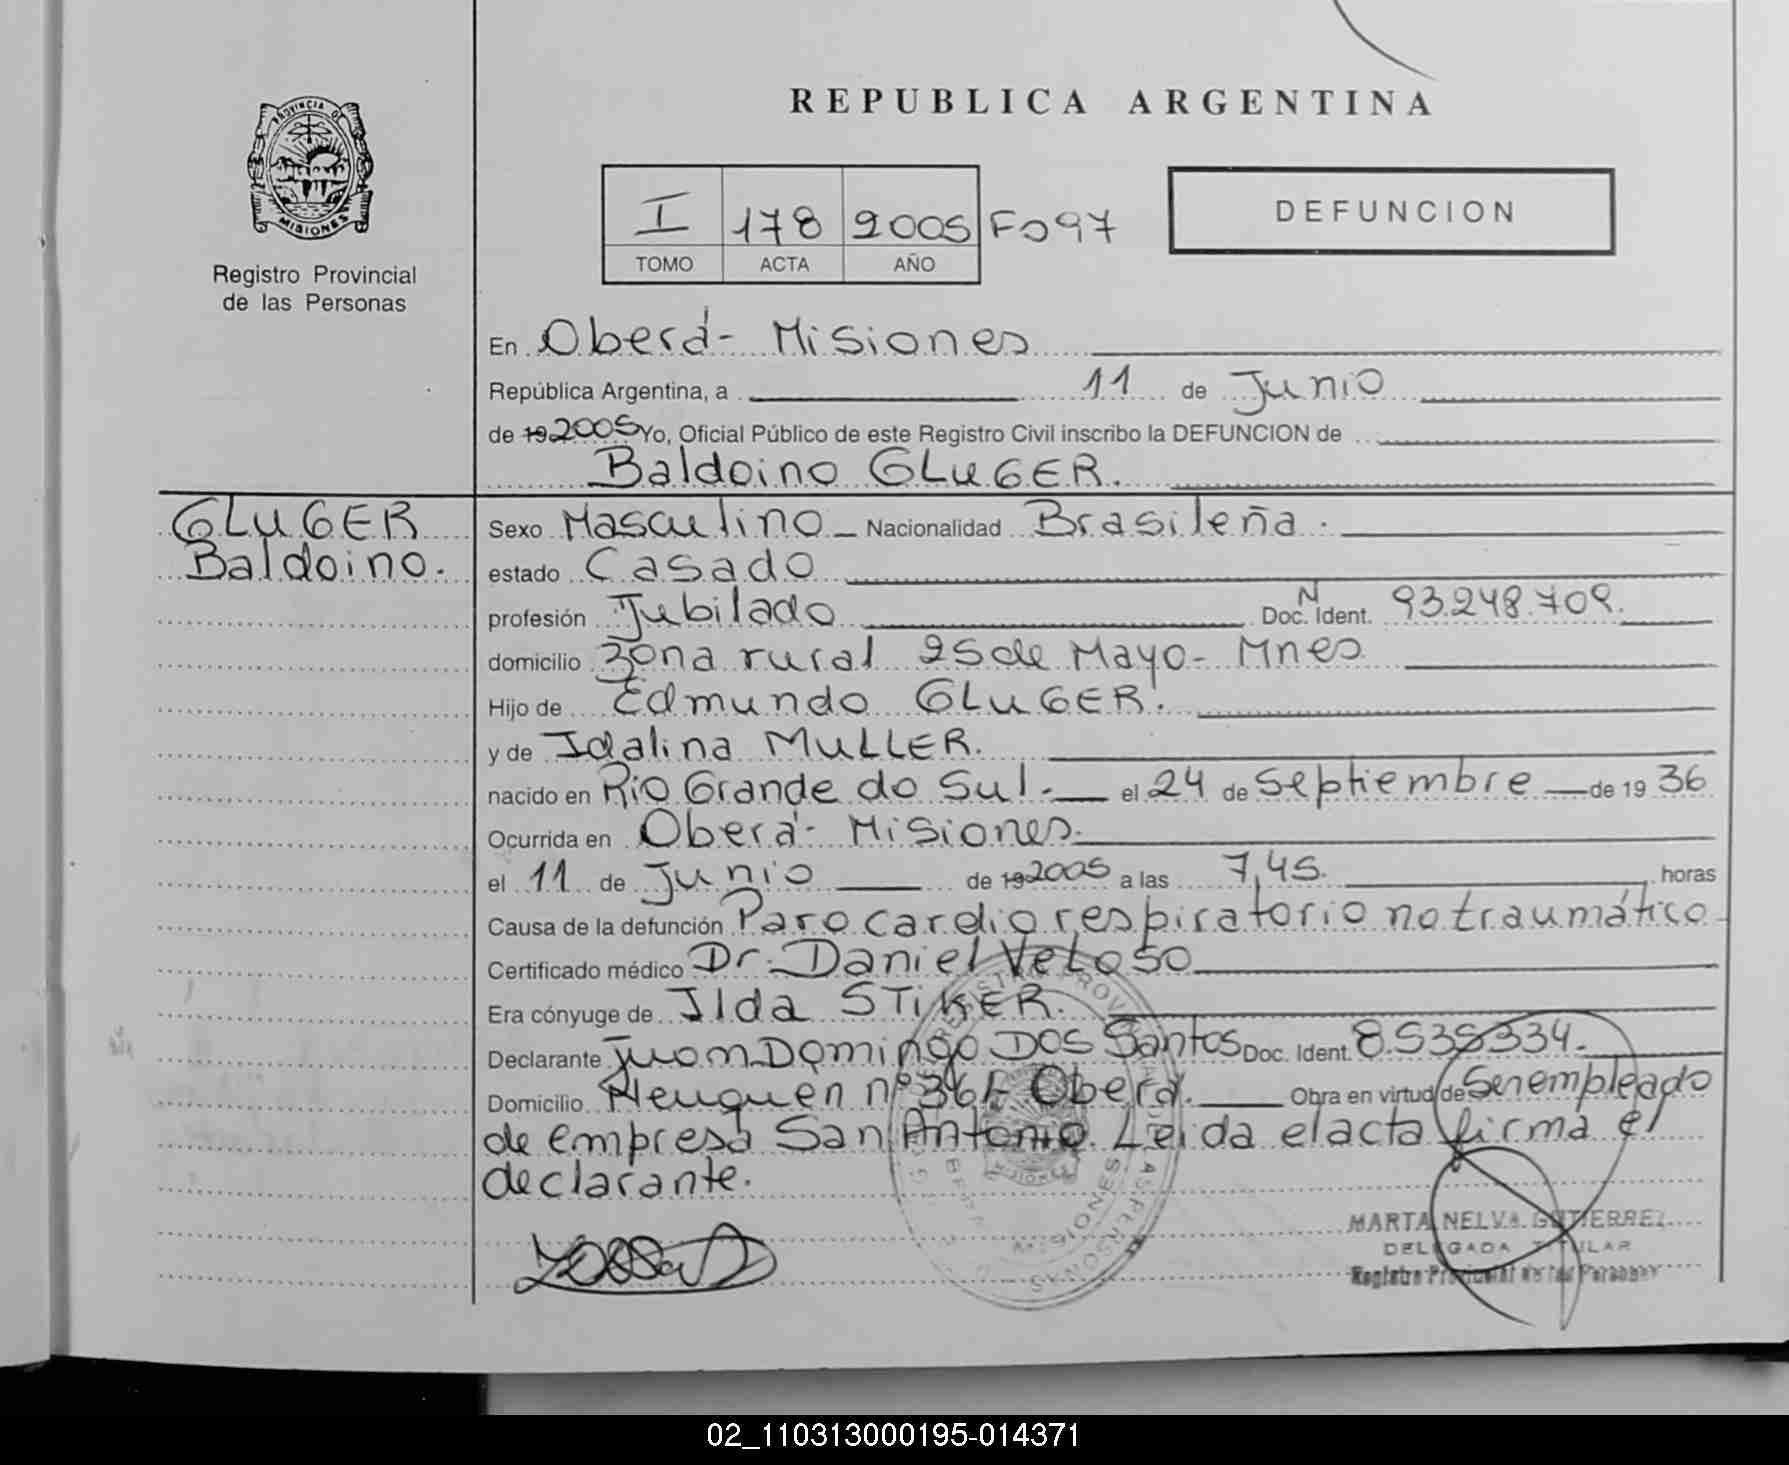 REPUBLICA ARGENTINA
PROVINCIA DE
MISIONES
Registro Provincial
de las Personas
I 178 2005 Fo97
TOMO ACTA AÑO
DEFUNCION
En Oberá- Misiones
República Argentina, a 11 de Junio
de 19 2005 Yo, Oficial Público de este Registro Civil inscribo la DEFUNCION de
Baldoino GLUGER.
GLUGER
Baldoino.
Sexo Masculino Nacionalidad Brasileña.
estado Casado
profesión Jubilado Doc. N Ident. 93.248.709.
domicilio Zona rural 25 de Mayo- Mnes
Hijo de Edmundo GLUGER.
y de Idalina MULLER.
nacido en Rio Grande do Sul.- el 24 de Septiembre de 19 36
Ocurrida en Oberá- Misiones.
el 11 de Junio de 19 2005 a las 7,45. horas
Causa de la defunción Paro cardio respiratorio no traumático
Certificado médico Dr. Daniel Veloso
Era cónyuge de Ilda STIKER.
Declarante Juan Domingo DOS Santos Doc. Ident. 8.535334.
Domicilio Neuquen nº 361- Oberá. Obra en virtud de Ser empleado
de empresa San Antonio. Leida el acta firma el
declarante.
MARTA NELVA GUTIERREZ
DELEGADA TITULAR
Registro Provincial de las Personas
02_110313000195-014371